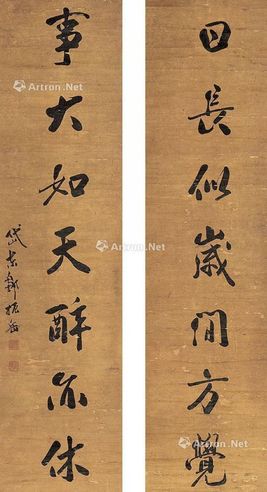 日長似歲閒方覺
事大如天醉亦休
岱東鄒振岳
Artron.Net
Artron.Net
Artron.Net